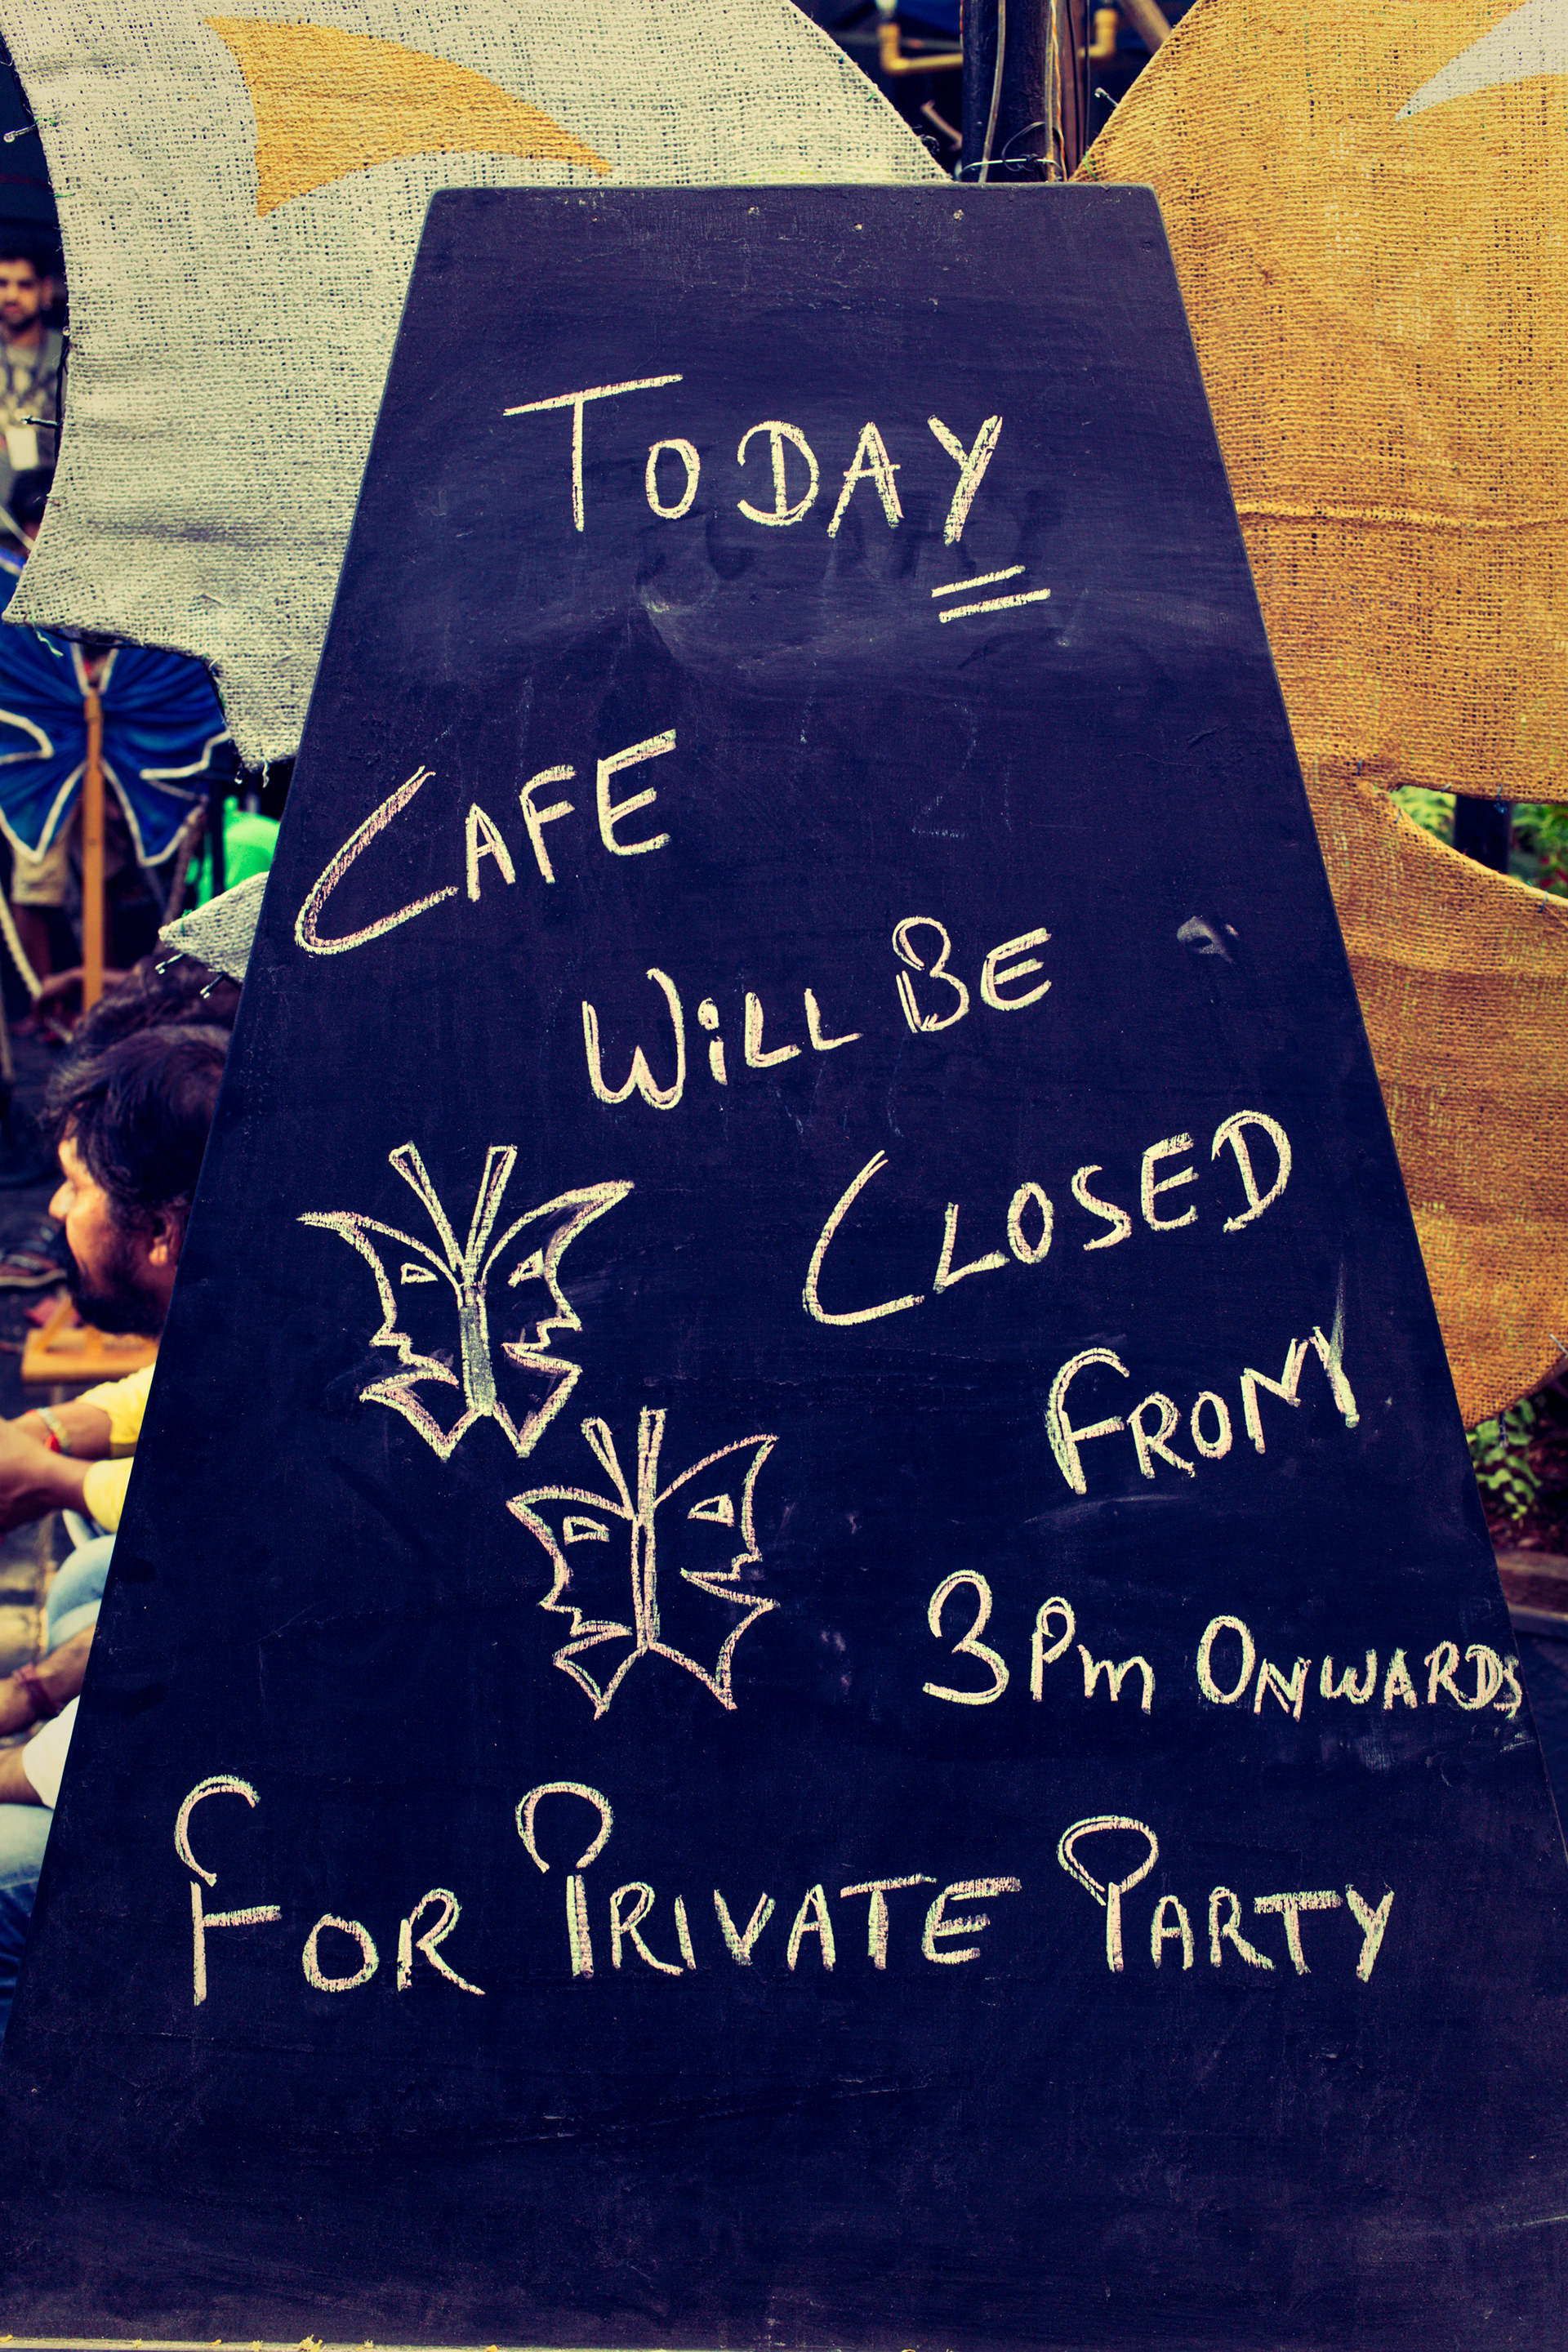 TODAY
CAFE
WiLL BE
CLOSED
FROM
3 Pm ONWARDS
FOR PRIVATE PARTY